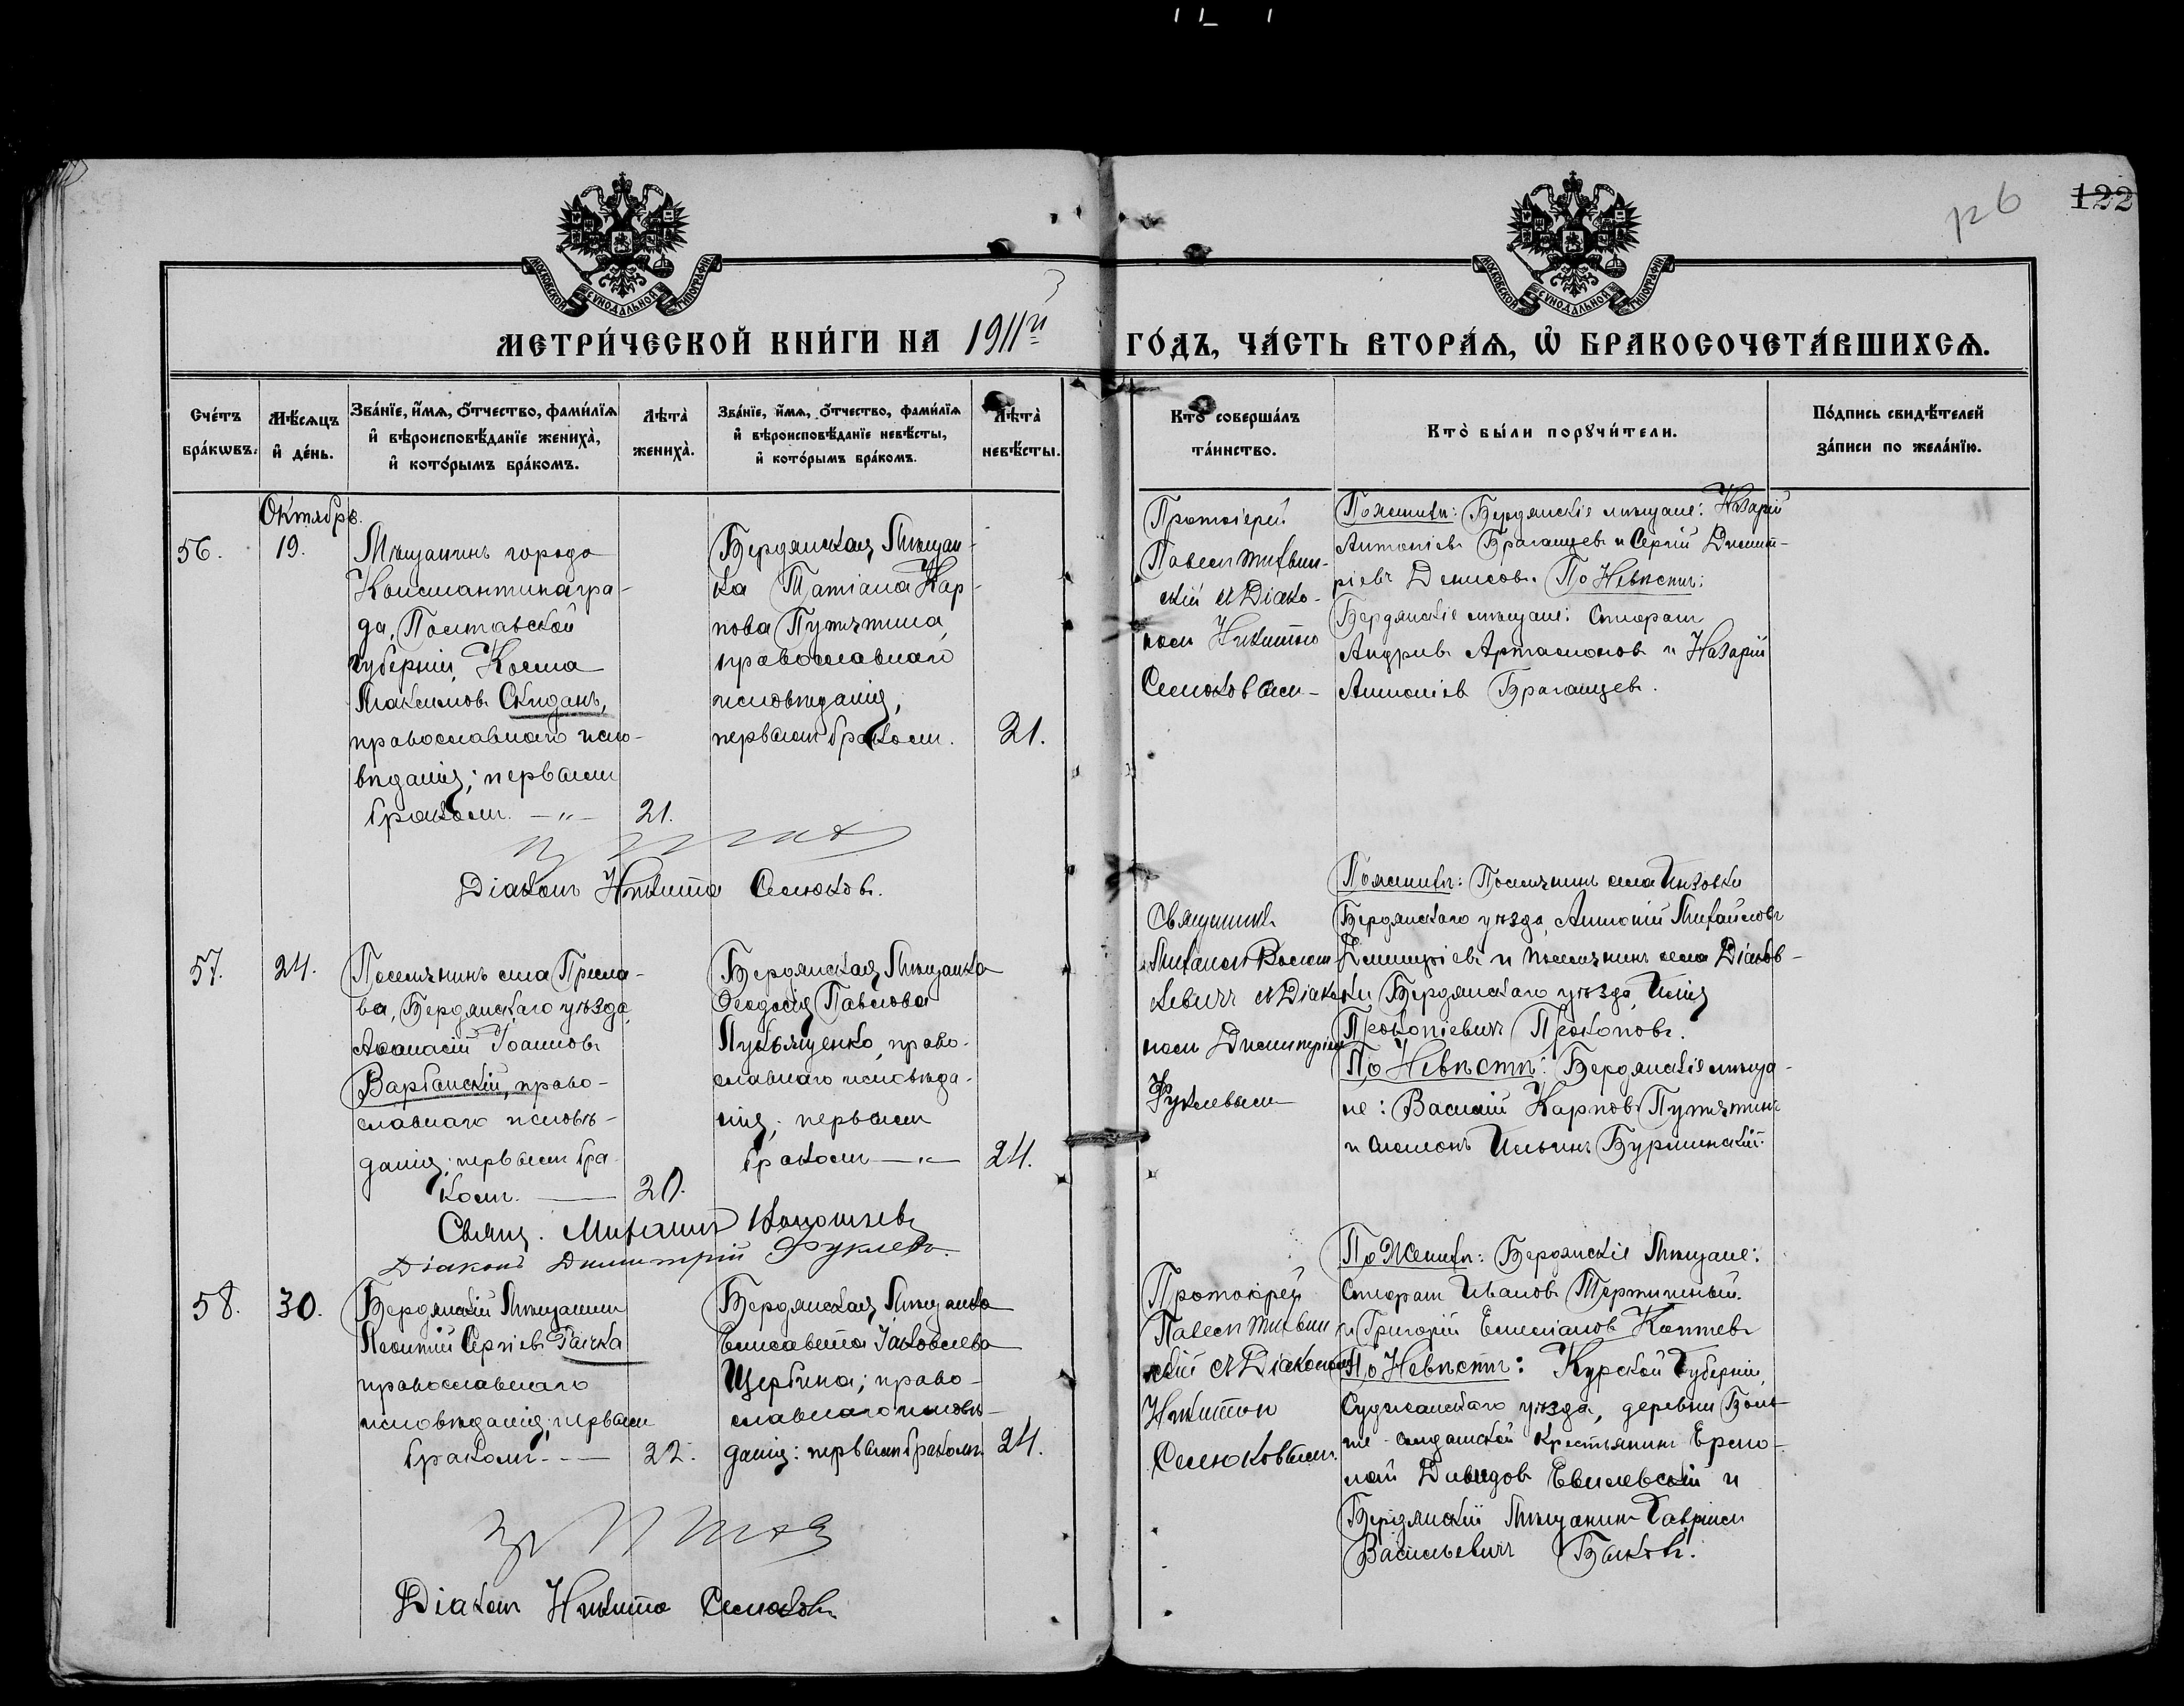 126 122
МОСКОВСКОЙ СѴНОДАЛЬНОЙ ТИПОГРАФІИ
МОСКОВСКОЙ СѴНОДАЛЬНОЙ ТИПОГРАФІИ
МЕТРИ́ЧЕСКОЙ КНИ́ГИ НА 1911й ГО́ДЪ, ЧА́СТЬ ВТОРА́Ѧ, Ѽ БРАКОСОЧЕТА́ВШИХСѦ.
Сче́тъ
бра́кѡвъ.
Мѣ́сѧцъ
и҆ де́нь.
Зва́нїе, и҆́мѧ, ѻ҆́тчество, фами́лїѧ
и҆ вѣроисповѣ́данїе жениха̀,
и҆ кото́рымъ бра́комъ.
Лѣта̀
жениха̀.
Зва́нїе, и҆́мѧ, ѻ҆́тчество, фами́лїѧ
и҆ вѣроисповѣ́данїе невѣ́сты,
и҆ кото́рымъ бра́комъ.
Лѣта̀
невѣ́сты.
Кто̀ соверша́лъ
та́инство.
Кто̀ бы́ли порꙋчи́тели.
По́дпись свидѣ́телей
за́писи по жела́нїю.
56.
Октябрь.
19.
Мѣщанинъ города
Константинагра-
да, Полтавской
губерніи, Косма
Максимовъ Скиданъ,
православнаго испо-
вѣданія; первымъ
бракомъ. — „ —
21.
Бердянская Мѣщан-
ка Татіана Кар-
пова Путятина,
православнаго
исповѣданія,
первымъ бракомъ.
21.
Протоіерей
Павелъ Тихвин-
скій съ Діако-
номъ Никитою
Семоковым-
По женихѣ: Бердянскіе мѣщане: Назарій
Антоніевъ Браганцевъ и Сергій Димит-
ріевъ Денисовъ. По Невѣстѣ:
Бердянскіе мѣщане: Стефанъ
Андреевъ Артамоновъ и Назарій
Антоніевъ Браганцевъ.
Діаконъ Никита Семоковъ.
57.
24.
Поселянинъ села Пресла-
ва, Бердянскаго уѣзда,
Аѳанасій Іоанновъ
Варбанскій, право-
славнаго исповѣ-
данія; первымъ бра-
комъ. —
20.
Бердянская Мѣщанка
Ѳеодосія Павлова
Лукьященко, право-
славнаго исповѣда-
нія; первымъ
бракомъ — „ —
24.
Священникъ
Михаилъ
съ Діако-
номъ Димитріемъ
Фуклевымъ
По женихѣ: Поселянинъ села Инзовки
Бердянскаго уѣзда, Антоній Михайловъ
Димитріевъ и поселянинъ села Діанов-
ки Бердянскаго уѣзда, Илія
Прокопіевичъ Прокоповъ.
По Невѣстѣ: Бердянскіе мѣща-
не: Василій Карповъ Путятинъ
и Симонъ Ильинъ Бурминскій.
Свящ. Михаилъ
Діаконъ Димитрій Фуклевъ.
58.
30.
Бердянскій Мѣщанинъ
Леонтій Сергіевъ Гаічка
православнаго
исповѣданія; первымъ
бракомъ. —
22.
Бердянская Мѣщанка
Елисавета Іаковлева
Щербина; право-
славнаго исповѣ-
данія: первымъ бракомъ.
24.
Протоіерей
Павелъ Тихвин-
скій съ Діакономъ
Никитою
Семоковымъ.
По Женихѣ: Бердянскіе Мѣщане:
Стефанъ Ивановъ Тертичный
и Григорій Емелиановъ Коптевъ
По Невѣстѣ: Курской Губерніи,
Суджанскаго уѣзда, деревни
крестьянинъ Ермо-
лай Давидовъ и
Бердянскій Мѣщанинъ Гавріилъ
Васильевичъ Быковъ.
Діаконъ Никита Семоковъ